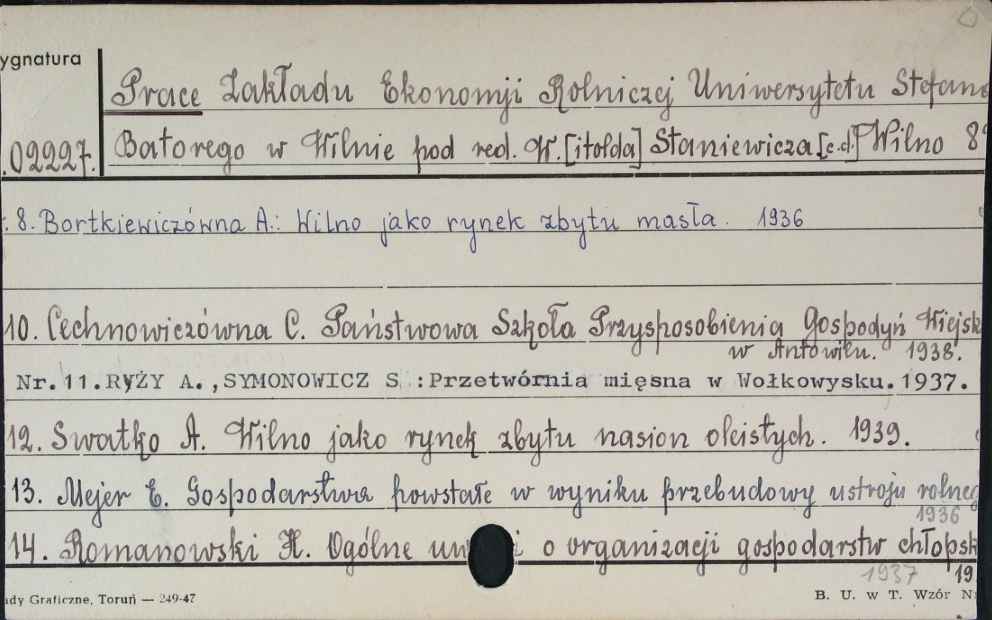 ygnatura
Prace Zakładu Ekonomji Rolniczej Uniwersytetu Stefana
.02227. Batorego w Wilnie pod red. W.[itolda] Staniewicza [c.d.] Wilno 8°
: 8. Bortkiewiczówna A.: Wilno jako rynek zbytu masła. 1936
10. Cechnowiczówna C. Państwowa Szkoła Przysposobienia Gospodyń Wiejsk
w Antowilu. 1938.
Nr.11.RYŻY A.,SYMONOWICZ S :Przetwórnia mięsna w Wołkowysku.1937.
12. Swatko A. Wilno jako rynek zbytu nasion oleistych. 1939.
13. Mejer E. Gospodarstwa powstałe w wyniku przebudowy ustroju rolneg
1936
14. Romanowski H. Ogólne uw i o organizacji gospodarstw chłopsk
1937 19
ady Graficzne, Toruń — 249-47 B. U. w T. Wzór N